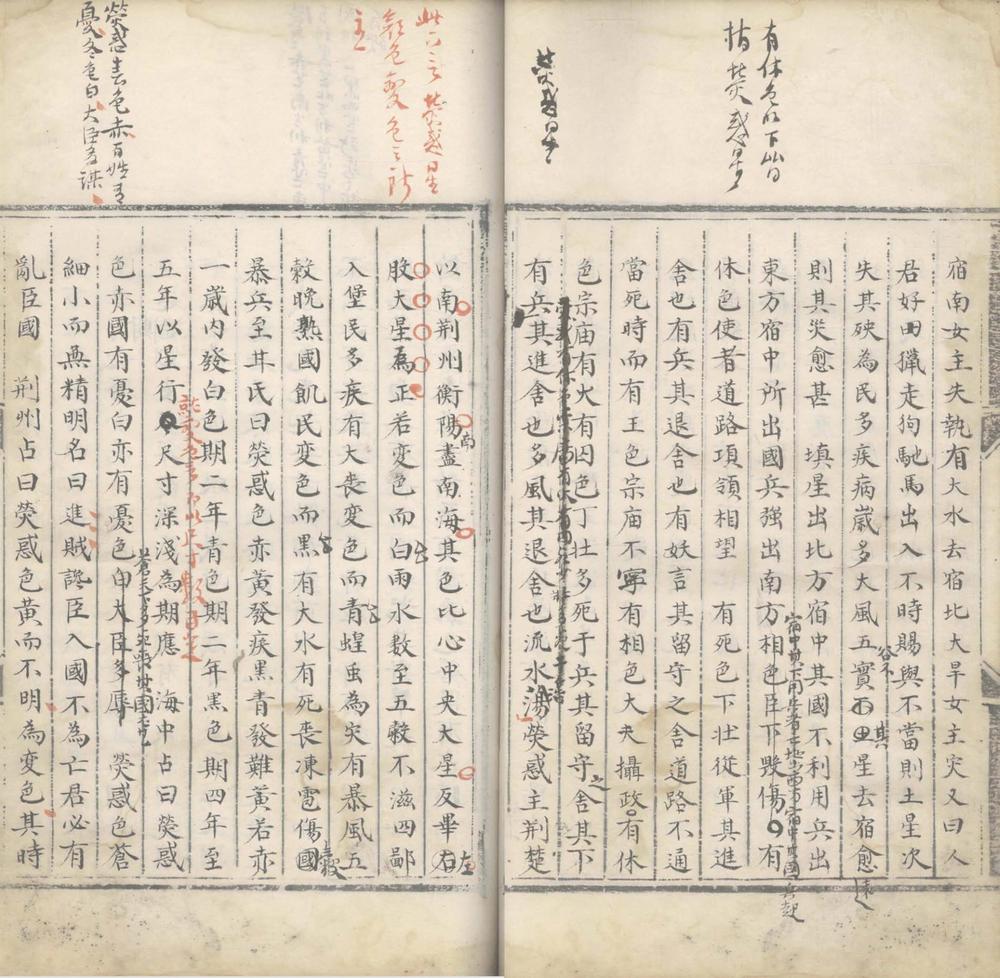 有休色以下皆
指熒惑星
熒惑星
宿南女主失執有大水去宿北大旱女主灾又曰人
君好田獵走狗馳馬出入不時賜與不當則土星次
失其殃為民多疾病嵗多大風五實不星去宿愈
則其災愈甚　填星出比方宿中其國不利用兵出
東方宿中所出國兵強出南方相色臣下毀傷有
休色使者道路項領相望　有死色下壮從軍其進
舍也有兵其退舍也有妖言其留守之舍道路不通
當死時而有王色宗庙不寧有相色大夫攝政有休
色宗庙有火有囚色丁壮多死于兵其留守舍其下
有兵其進舍也多風其退舍也流水蕩熒惑主荆楚
熒惑星
顔色變色之所
主
熒惑青色赤百姓有
憂冬色白大臣多謀
以南荆州衡陽盡南海其色比心中央大星反畢右
股大星為正若変色而白雨水数至五穀不滋四鄙
入堡民多疾有大丧変色而青蝗虫為灾有暴風五
穀晚熟國飢民変色而黒有大水有死丧凍雹傷國
暴兵至甘氏曰熒惑色赤黄發疾黒青發難黄若赤
一嵗内發白色期二年青色期二年黒色期四年至
五年以星行尺寸深淺為期應　海中占曰熒惑
色赤國有憂白亦有憂色白大臣多辱　熒惑色蒼
細小而無精明名曰進賊讒臣入國不為亡君必有
亂臣國　荆州占曰熒惑色黄而不明為変色其時